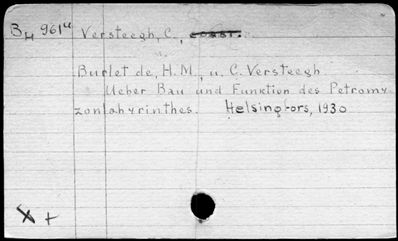 B4 961u Versteegh, C.,
Burlet de, H.M., u. C. Versteegh
Ueber Bau und Funktion des Petromy
zonlabyrinthes. Helsingfors, 1930
X +